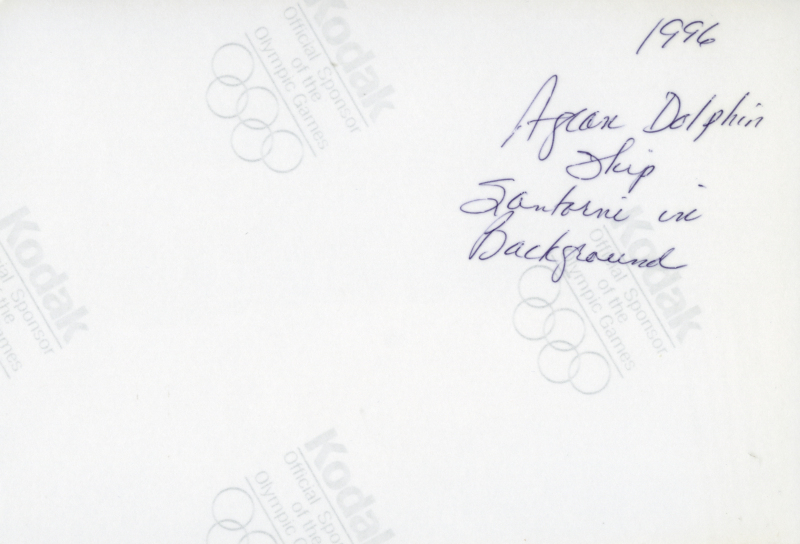 1996
Agean Dolphin
Ship
Santorni in
Background
Kodak
Official Sponsor
of the
Olympic Games
Kodak
Sponsor
of the
Games
Kodak
Official Sponsor
of the
Olympic Games
Kodak
Official Spo
of the
Olympic G